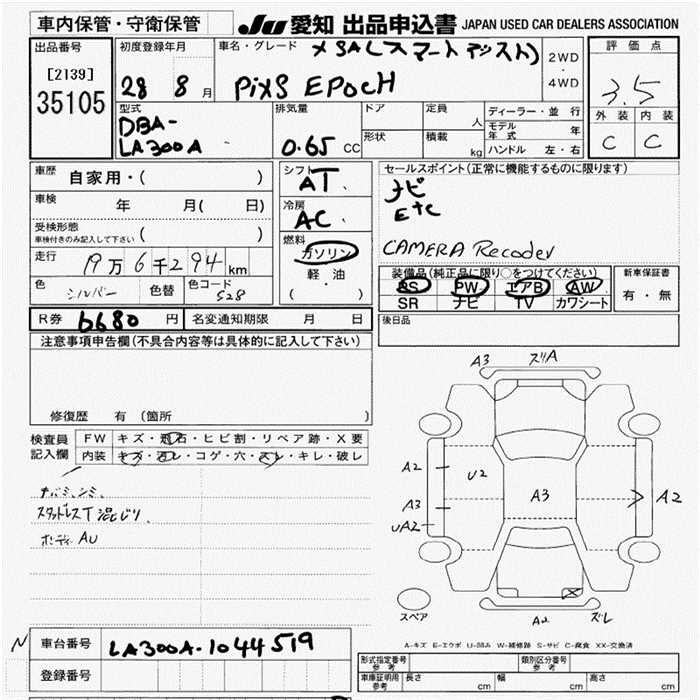 車内保管・守衛保管
JU 愛知 出品申込書 JAPAN USED CAR DEALERS ASSOCIATION
出品番号
[2139]
35105
初度登録年月
28 8 月
車名・グレード
X SA(スマートアシスト)
PiXS EPOCH
2WD
・
4WD
評価点
3.5
外装 内装
C C
型式
DBA-
LA300A
排気量
0.65 CC
ドア
形状
定員
人
積載
kg
ディーラー・並行
モデル年式 年
ハンドル 左・右
車歴 自家用・( )
車検 年 月( 日)
受検形態
車検付きのみ記入して下さい ( )
走行 19万6千294 km
色 シルバー 色替 色コード S28
シフト
AT
冷房
AC
燃料
ガソリン
軽・油
( ・ )
セールスポイント(正常に機能するものに限ります)
ナビ
ETC
CAMERA Recoder
装備品(純正品に限り○をつけてください)
PS PW エアB AW
SR ナビ TV カワシート
新車保証書
有・無
R券 6680 円 名変通知期限 月 日
後日品
注意事項申告欄(不具合内容等は具体的に記入して下さい)
修復歴 有 (箇所 )
検査員
記入欄
FW キズ・飛石・ヒビ割・リペア跡・X要
内装 キズ・汚レ・コゲ・穴・スレ・キレ・破レ
スタッドレスT 混じり、
ボディ AU
A3 ズリA
A2 U2
A3
A3
UA2
A2
スペア A2 ズレ
A-キズ E-エクボ U-凹み W-補修跡 S-サビ C-腐食 XX-交換済
N 車台番号 LA300A-1044519
登録番号
形式指定番号
参考
類別区分番号
参考
車庫証明用
参考
長さ cm 幅 cm 高さ cm